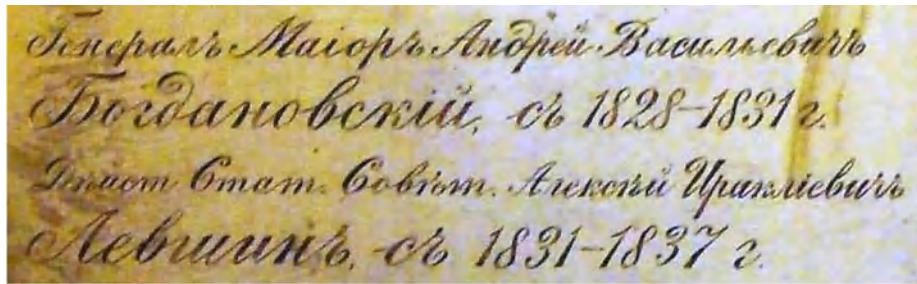 Генералъ Маіоръ Андрей Васильевичъ
Богдановскій, съ 1828-1831 г.
Дѣйст Стат. Совѣт. Алексѣй Иракліевичъ
Левшинъ, съ 1831-1837 г.